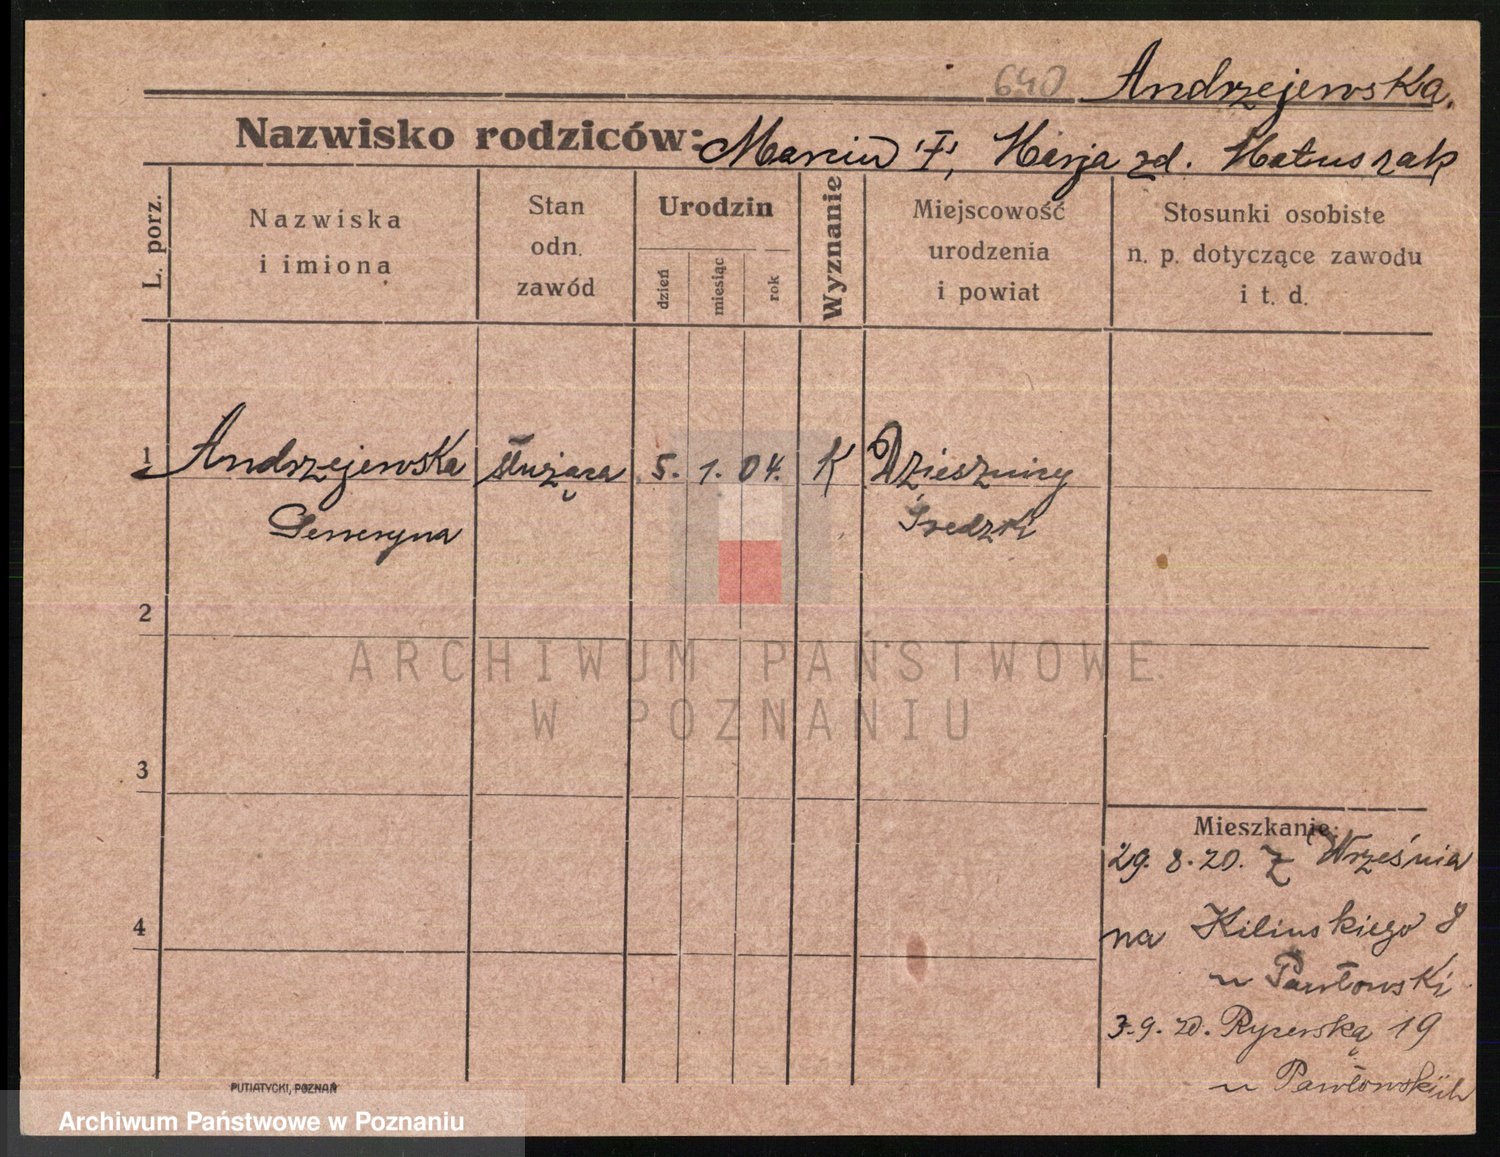 640 Andrzejewska.
Nazwisko rodziców: Marcin '†', Marja zd. Matuszak
L. porz.
Nazwiska
i imiona
Stan
odn.
zawód
Urodzin
dzień
miesiąc
rok
Wyznanie
Miejscowość
urodzenia
i powiat
Stosunki osobiste
n. p. dotyczące zawodu
i t. d.
1 Andrzejewska służąca 5. 1. 04. K
Seweryna Średzki
2
ARCHIWUM PAŃSTWOWE
W POZNANIU
3
Mieszkanie:
29. 8. 20. z Września
4
na Kilinskiego 8
u Pawłowski
3. 9. 20. 19
u Pawłowskich
PUTIATYCKI, POZNAŃ
Archiwum Państwowe w Poznaniu